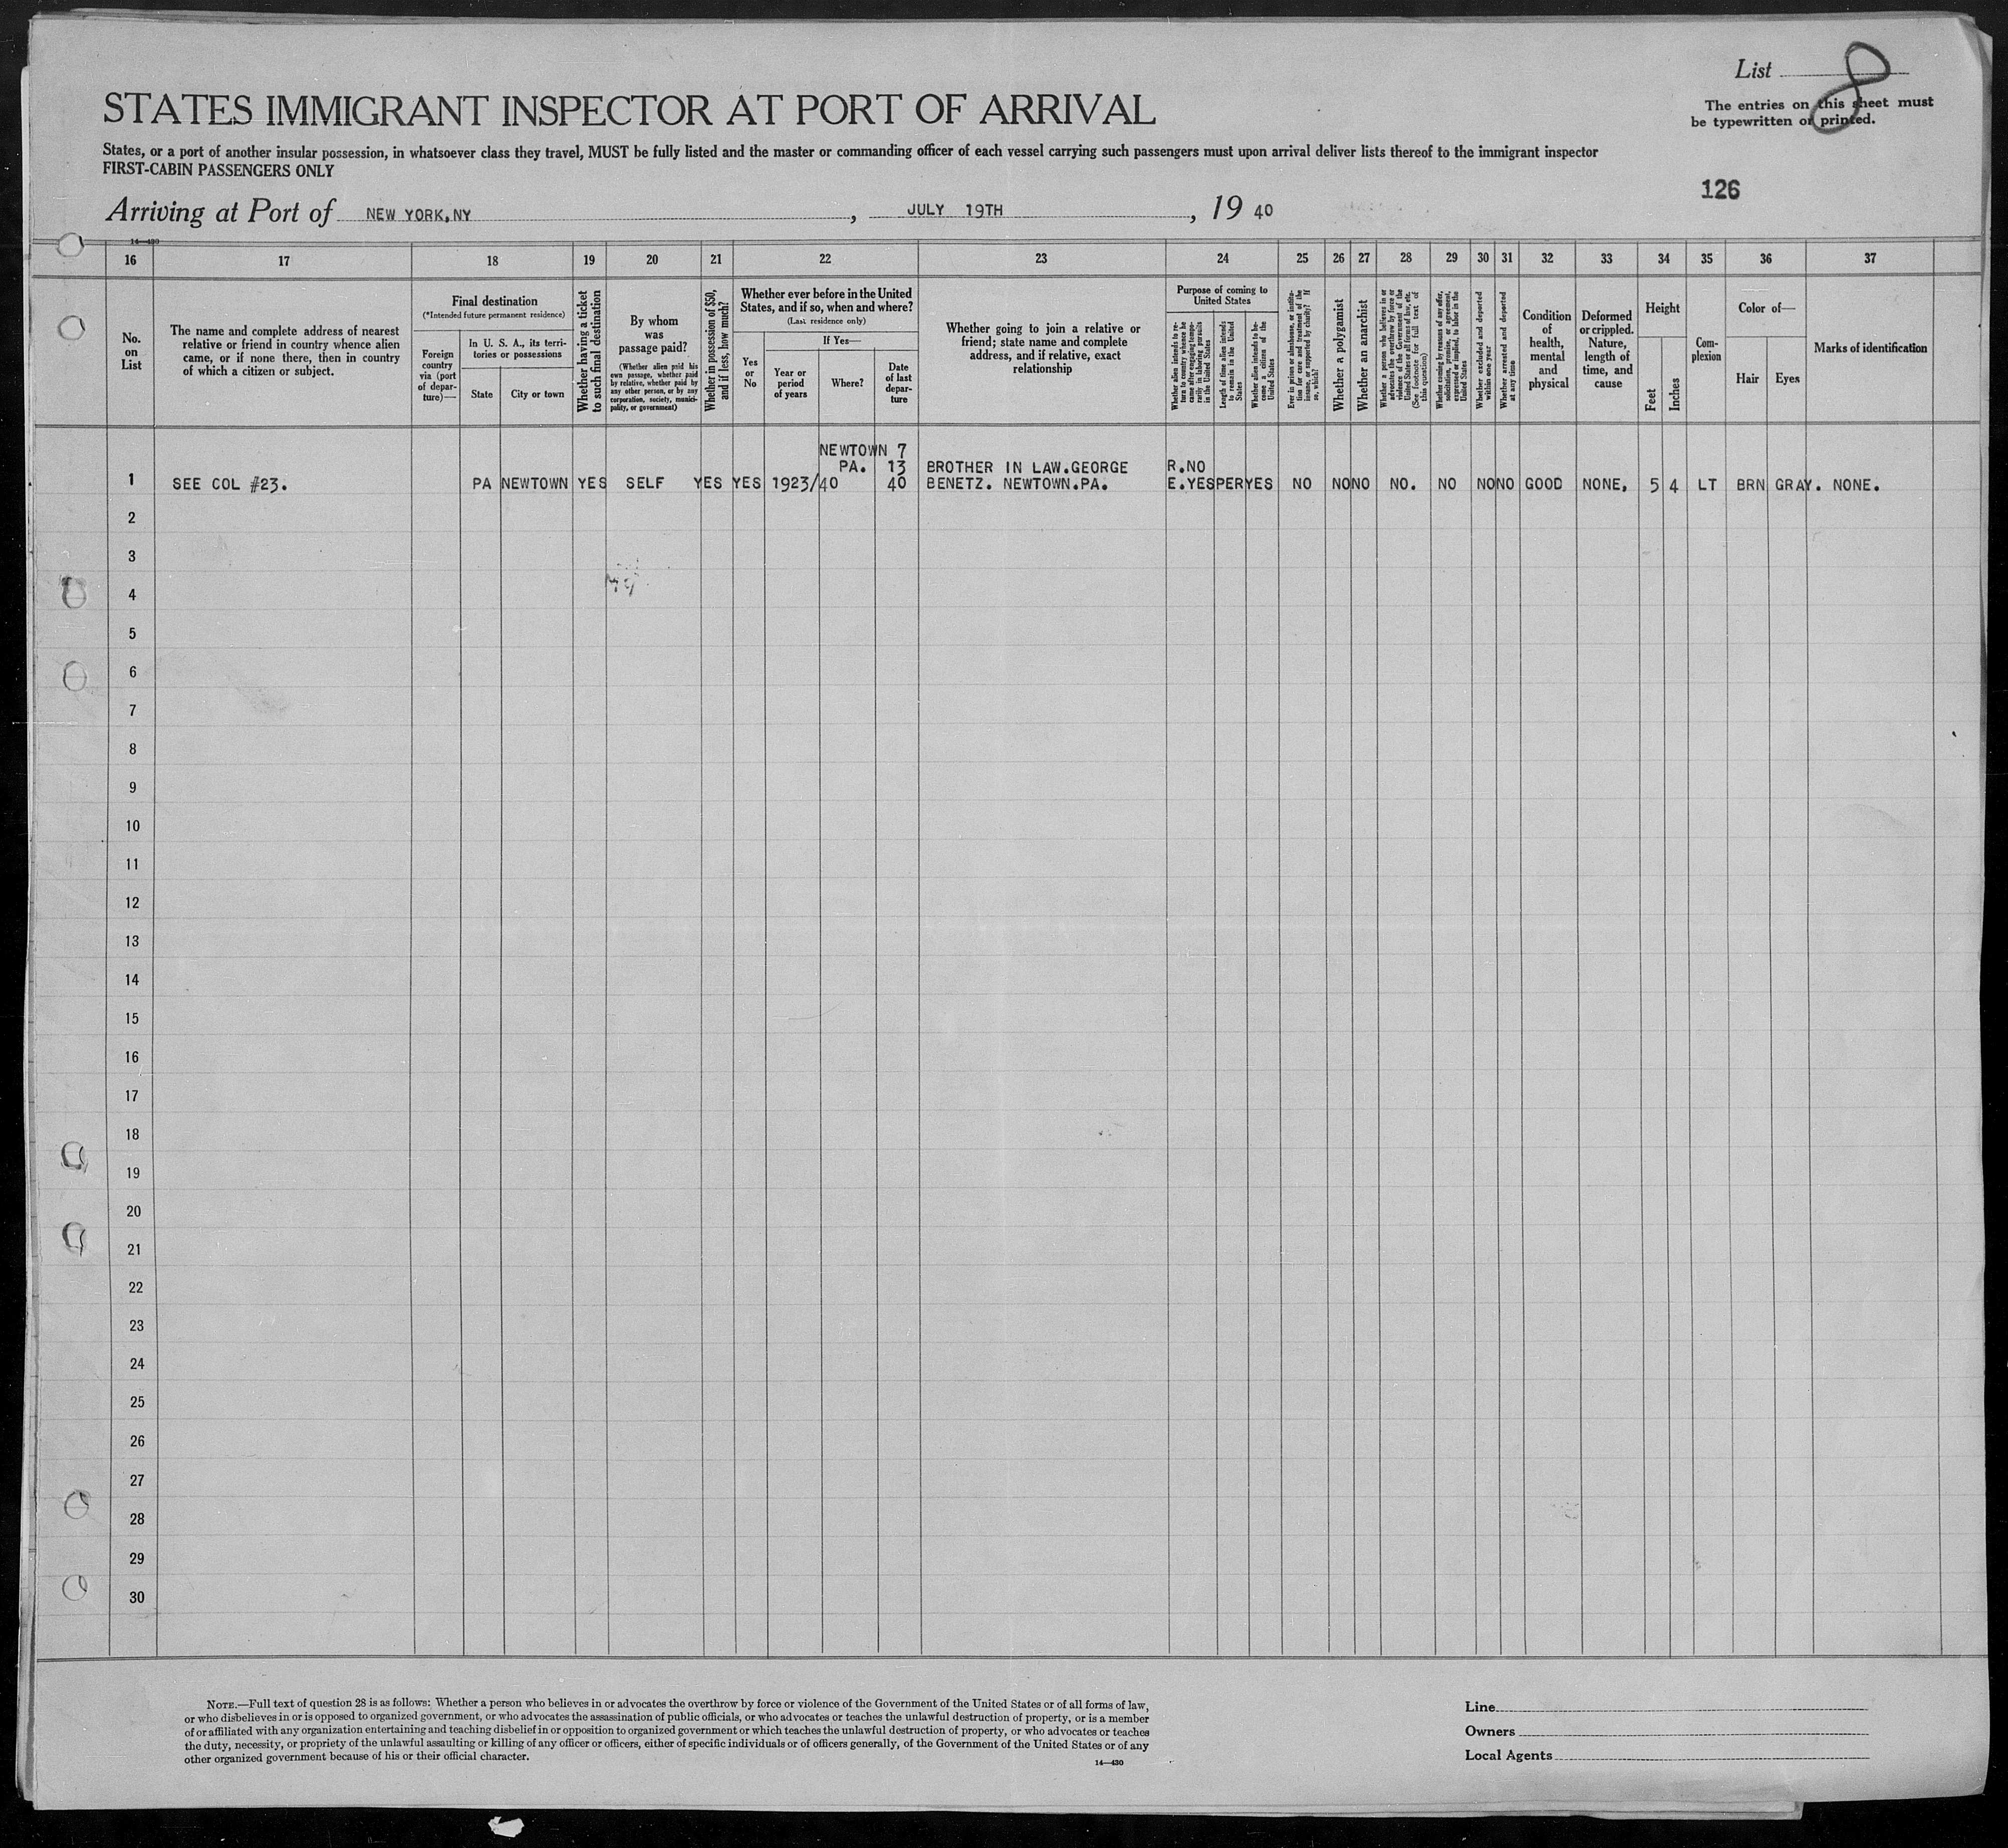 List 8
The entries on this sheet must
be typewritten or printed.
STATES IMMIGRANT INSPECTOR AT PORT OF ARRIVAL
States, or a port of another insular possession, in whatsoever class they travel, MUST be fully listed and the master or commanding officer of each vessel carrying such passengers must upon arrival deliver lists thereof to the immigrant inspector
FIRST-CABIN PASSENGERS ONLY
126
Arriving at Port of NEW YORK, NY, JULY 19TH, 19 40
14—430
16 17 18 19 20 21 22 23 24 25 26 27 28 29 30 31 32 33 34 35 36 37
No.
on
List
The name and complete address of nearest
relative or friend in country whence alien
came, or if none there, then in country
of which a citizen or subject.
Final destination
(*Intended future permanent residence)
Foreign
country
via (port
of depar-
ture)—
In U. S. A., its terri-
tories or possessions
State
City or town
Whether having a ticket
to such final destination
By whom
was
passage paid?
(Whether alien paid his
own passage, whether paid
by relative, whether paid by
any other person, or by any
corporation, society, munici-
pality, or government)
Whether in possession of $50,
and if less, how much?
Whether ever before in the United
States, and if so, when and where?
(Last residence only)
Yes
or
No
If Yes—
Year or
period
of years
Where?
Date
of last
depar-
ture
Whether going to join a relative or
friend; state name and complete
address, and if relative, exact
relationship
Purpose of coming to
United States
Whether alien intends to re-
turn to country whence he
came after engaging tempo-
rarily in laboring pursuits
in the United States
Length of time alien intends
to remain in the United
States
Whether alien intends to be-
come a citizen of the
United States
Ever in prison or almshouse, or institu-
tion for care and treatment of the
insane, or supported by charity? If
so, which?
Whether a polygamist
Whether an anarchist
Whether a person who believes in or
advocates the overthrow by force or
violence of the Government of the
United States or all forms of law, etc.
(See footnote for full text of
this question)
Whether coming by reason of any offer,
solicitation, promise, or agreement,
expressed or implied, to labor in the
United States
Whether excluded and deported
within one year
Whether arrested and deported
at any time
Condition
of
health,
mental
and
physical
Deformed
or crippled.
Nature,
length of
time, and
cause
Height
Feet
Inches
Com-
plexion
Color of—
Hair
Eyes
Marks of identification
NEWTOWN 7
PA. 13 BROTHER IN LAW.GEORGE R.NO
1 SEE COL #23. PA NEWTOWN YES SELF YES YES 1923/40 40 BENETZ. NEWTOWN.PA. E.YES PER YES NO NO NO NO. NO NO NO GOOD NONE. 5 4 LT BRN GRAY. NONE.
2
3
4
5
6
7
8
9
10
11
12
13
14
15
16
17
18
19
20
21
22
23
24
25
26
27
28
29
30
NOTE.—Full text of question 28 is as follows: Whether a person who believes in or advocates the overthrow by force or violence of the Government of the United States or of all forms of law,
or who disbelieves in or is opposed to organized government, or who advocates the assassination of public officials, or who advocates or teaches the unlawful destruction of property, or is a member
of or affiliated with any organization entertaining and teaching disbelief in or opposition to organized government or which teaches the unlawful destruction of property, or who advocates or teaches
the duty, necessity, or propriety of the unlawful assaulting or killing of any officer or officers, either of specific individuals or of officers generally, of the Government of the United States or of any
other organized government because of his or their official character.
14—430
Line
Owners
Local Agents